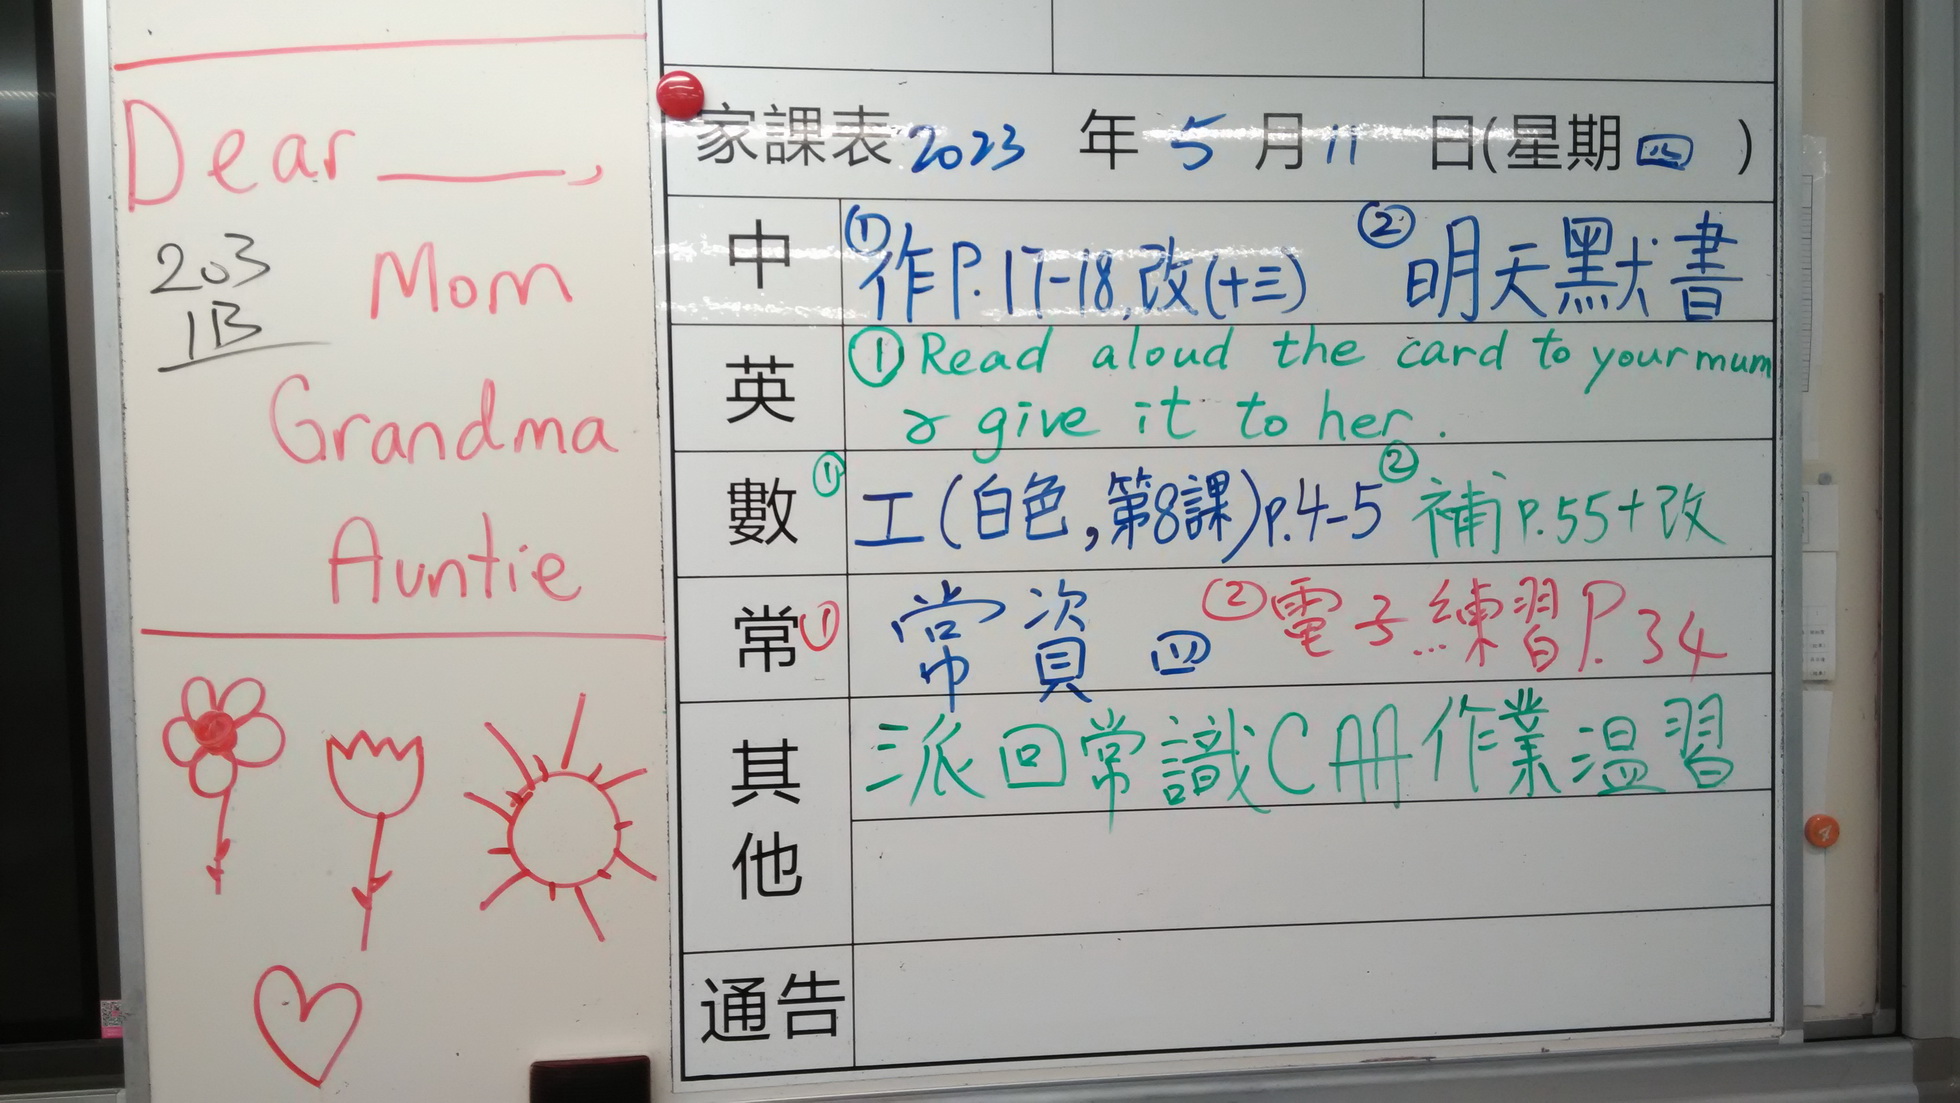 Dear ______,
203
1B
Mom
Grandma
Auntie
家課表 2023 年 5 月 11 日(星期四)
中 ①作P.17-18,改(十三) ②明天默書
英 ①Read aloud the card to your mum
& give it to her.
數 ①工(白色,第8課)p.4-5 ②補P.55+改
常 ①常資四 ②電子練習P.34
其他 派回常識C冊作業温習
通告